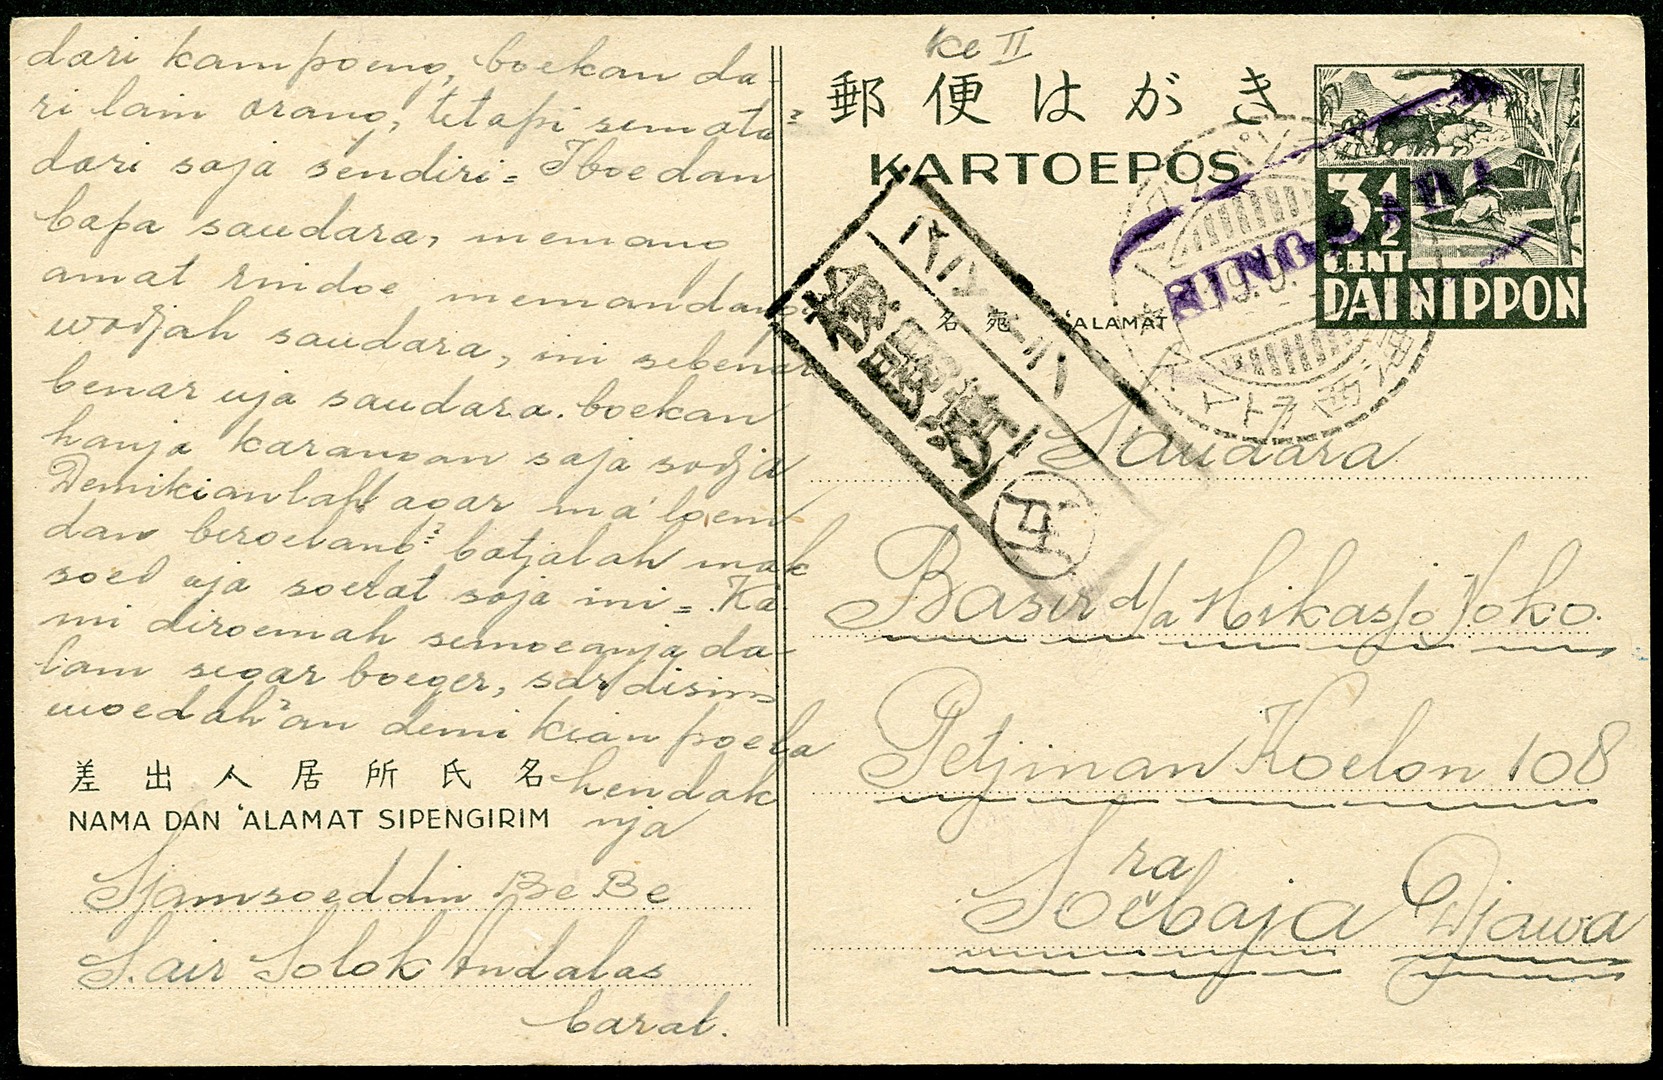 dari kampoeng, boekan da-
ri lain orang, tetapi semata²
dari saja sendiri = Iboe dan
bapa saudara, memang
amat rindoe memandang
wadjah saudara, ini sebenar
benar nja saudara. boekan
hanja karangan saja sadja
Demikianlah agar ma'loem
dan beroelang² batjalah mak
soed nja soerat saja ini = Ka-
mi diroemah semoeanja da-
lam segar boeger,
moedah²an demikian poela
hendak
nja
差出人居所氏名
NAMA DAN 'ALAMAT SIPENGIRIM
Sjamsoeddin Be Be
S. air Solok Andalas
barat.
ke II
郵便はがき
KARTOEPOS
3½
CENT
DAI NIPPON
名宛 'ALAMAT
検閲済
Saudara
Basir d/a Hikasjo Yoko.
Petjinan Koelon 108
Soerabaja Djawa